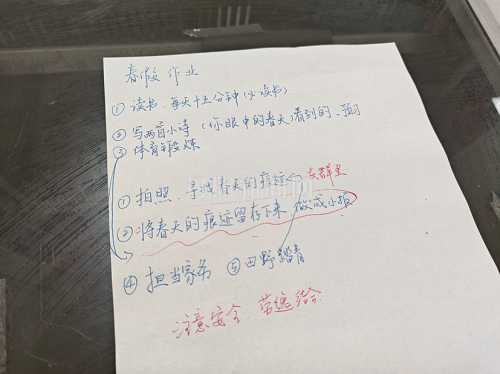 春假作业
① 读书. 每天十五分钟 (必读书)
② 写两首小诗 (你眼中的春天) 看到的、
③ 体育锻炼
① 拍照. 寻找春天的痕迹 发群里
② 将春天的痕迹留存下来. 做成小报
④ 担当家务 ⑤ 田野踏青
注意安全. 劳逸结合